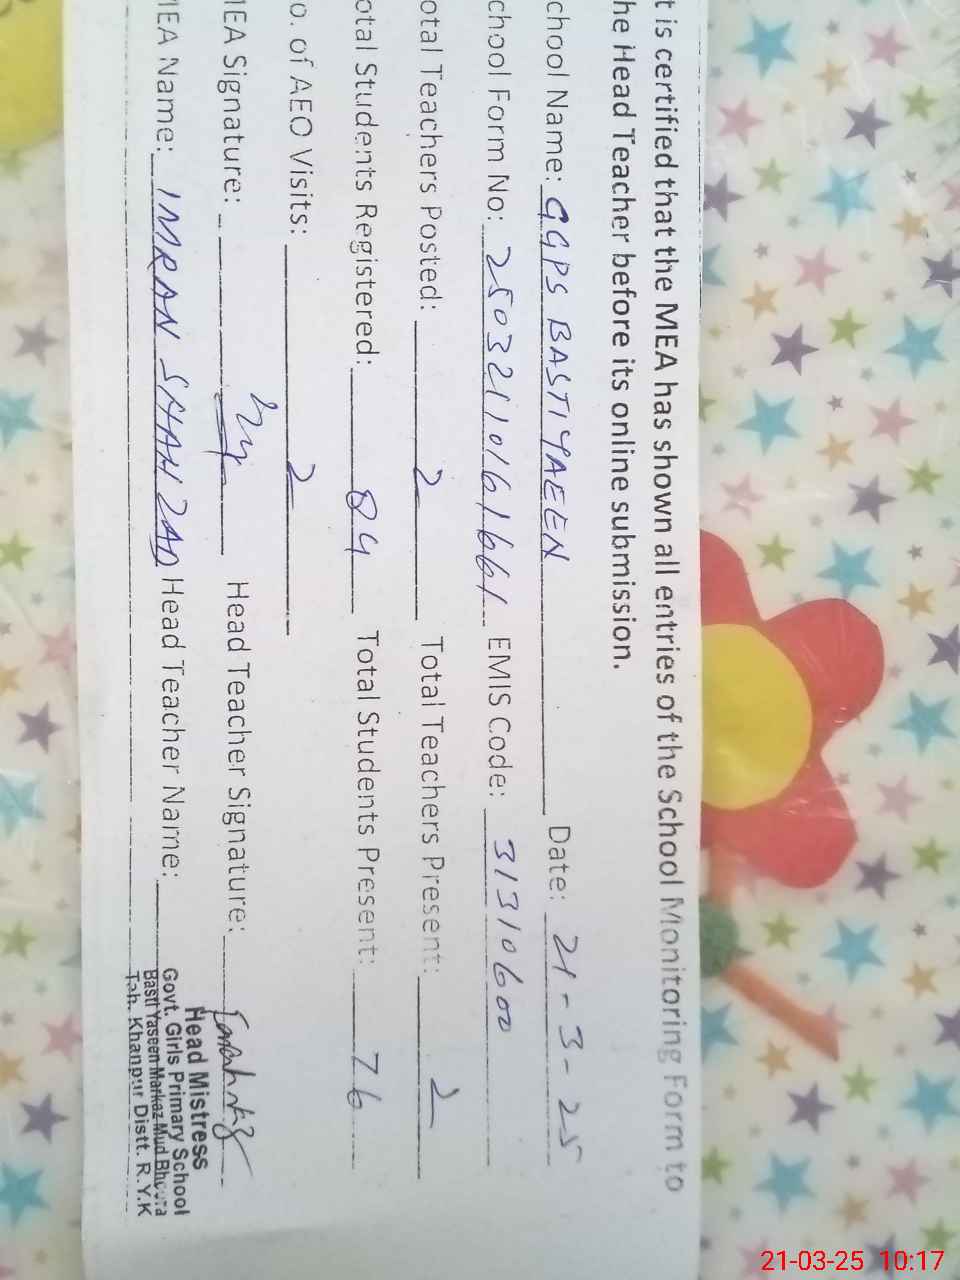 t is certified that the MEA has shown all entries of the School Monitoring Form to
he Head Teacher before its online submission.
chool Name: GGPS BASTI YAEEN Date: 21-3-25
chool Form No: 25032110161661 EMIS Code: 31310600
otal Teachers Posted: 2 Total Teachers Present: 2
otal Students Registered: 84 Total Students Present: 76
o. of AEO Visits: 2
MEA Signature: Head Teacher Signature:
MEA Name: IMRAN SHAHZAD Head Teacher Name:
Head Mistress
Govt. Girls Primary School
Basti Yaseen Markaz Mud Bhoora
Teh. Khanpur Distt. R.Y.K
21-03-25 10:17